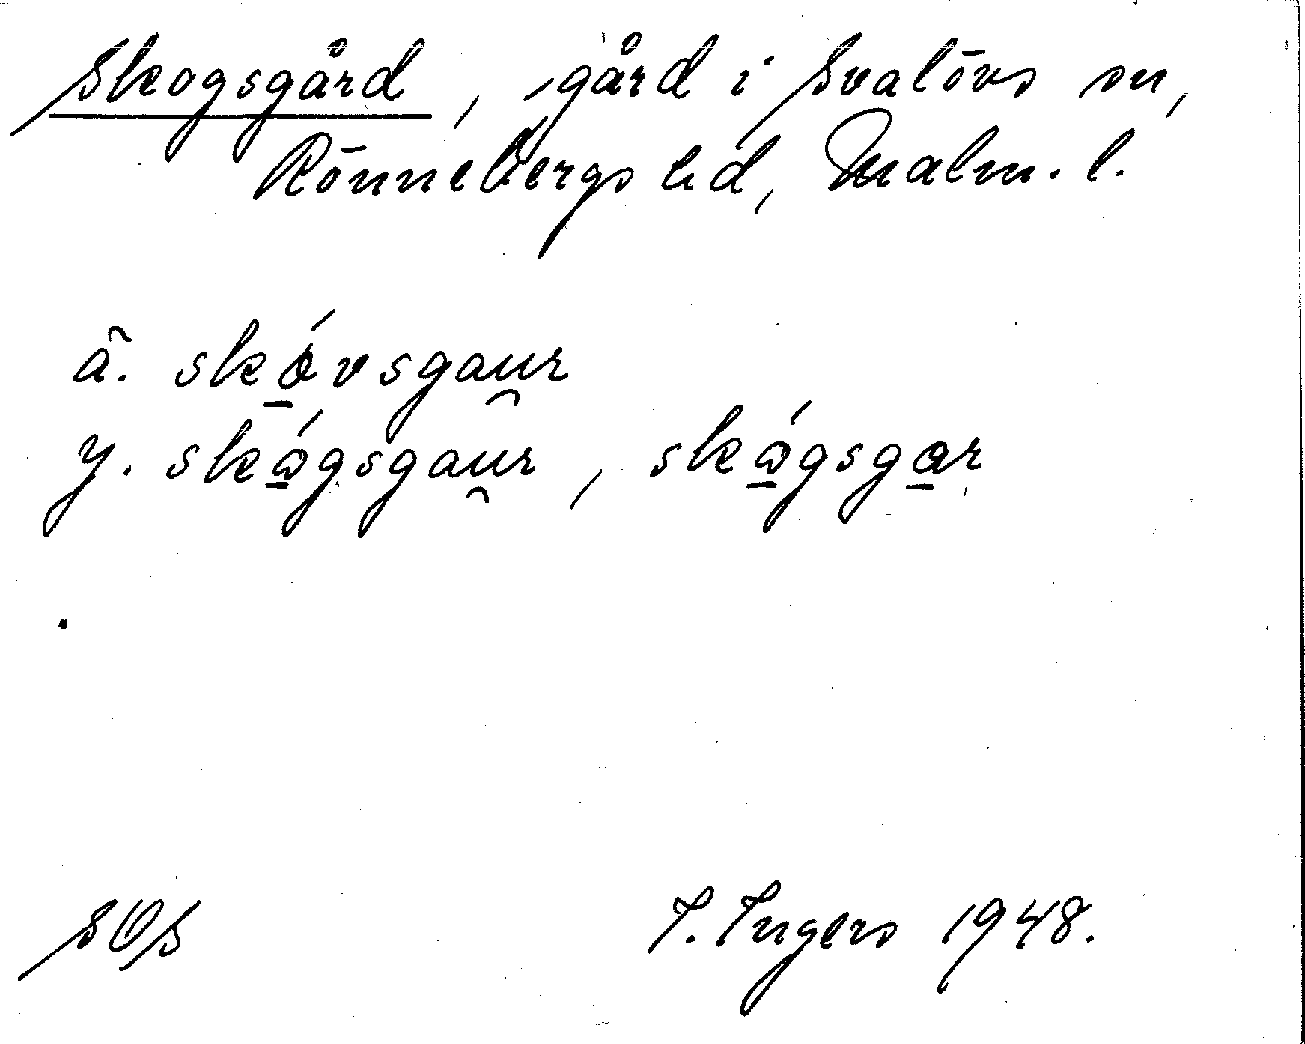 Skogsgård, gård i Svalövs sn,
Rönnebergs hd, Malm. l.
ä. skó̱vsgau̯r
y. skó̱gsgau̯r, skó̱gsga̱r
SOS
I. Ingers 1948.